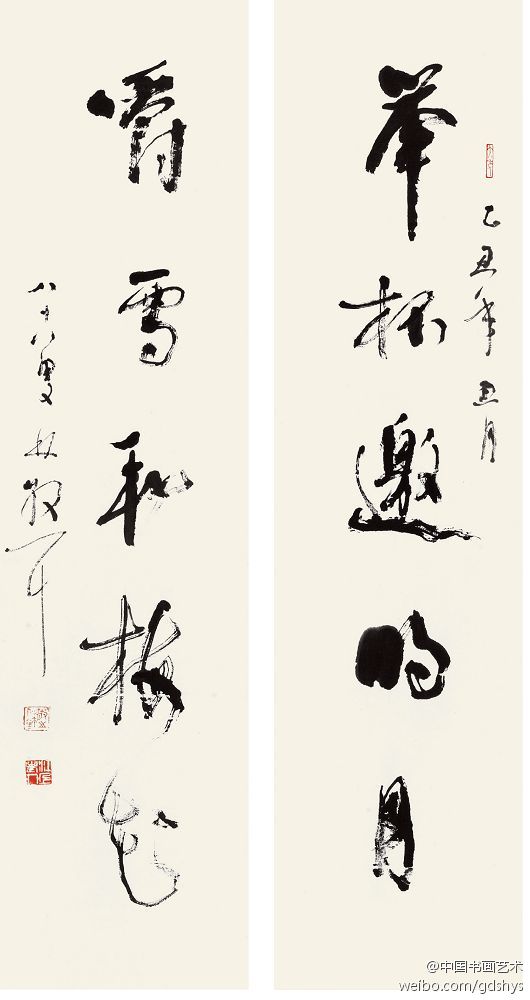 乙丑年丑月
举杯邀明月
嚼雪和梅花
八十八叟林散耳
@中国书画艺术
weibo.com/gdshys